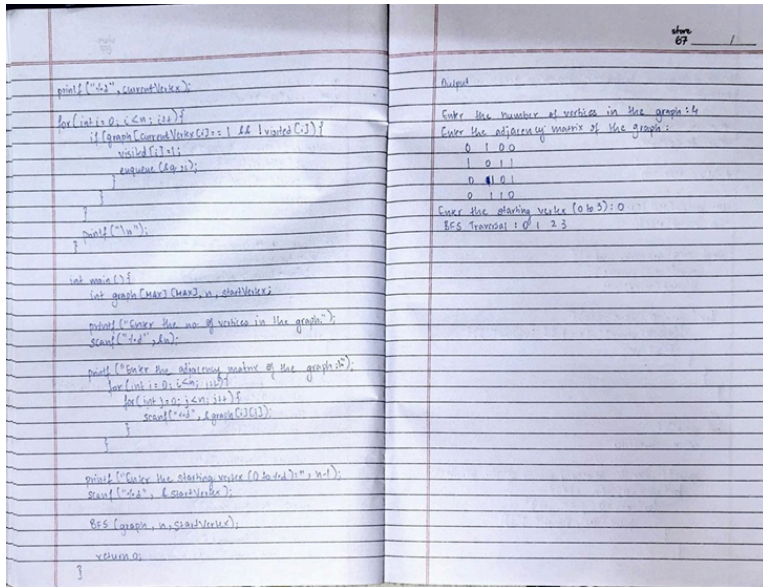 printf("%d", currentVertex);
for(int i=0; i<n; i++){
if(graph[currentVertex[i]==1 && !visited[i]){
visited[i]=1;
enqueue(&q, i);
}
}
}
printf("\n");
}
int main(){
int graph[MAX][MAX], n, startVertex;
printf("Enter the no. of vertices in the graph:");
scanf("%d", &n);
printf("Enter the adjacency matrix of the graph:\n");
for(int i=0; i<n; i++){
for(int j=0; j<n; j++){
scanf("%d", &graph[i][j]);
}
}
printf("Enter the starting vertex (0 to %d):", n-1);
scanf("%d", &startVertex);
BFS(graph, n, startVertex);
return 0;
}
store
67 ___ / ___
Output
Enter the number of vertices in the graph: 4
Enter the adjacency matrix of the graph:
0 1 0 0
1 0 1 1
0 1 0 1
0 1 1 0
Enter the starting vertex (0 to 3): 0
BFS Traversal: 0 1 2 3